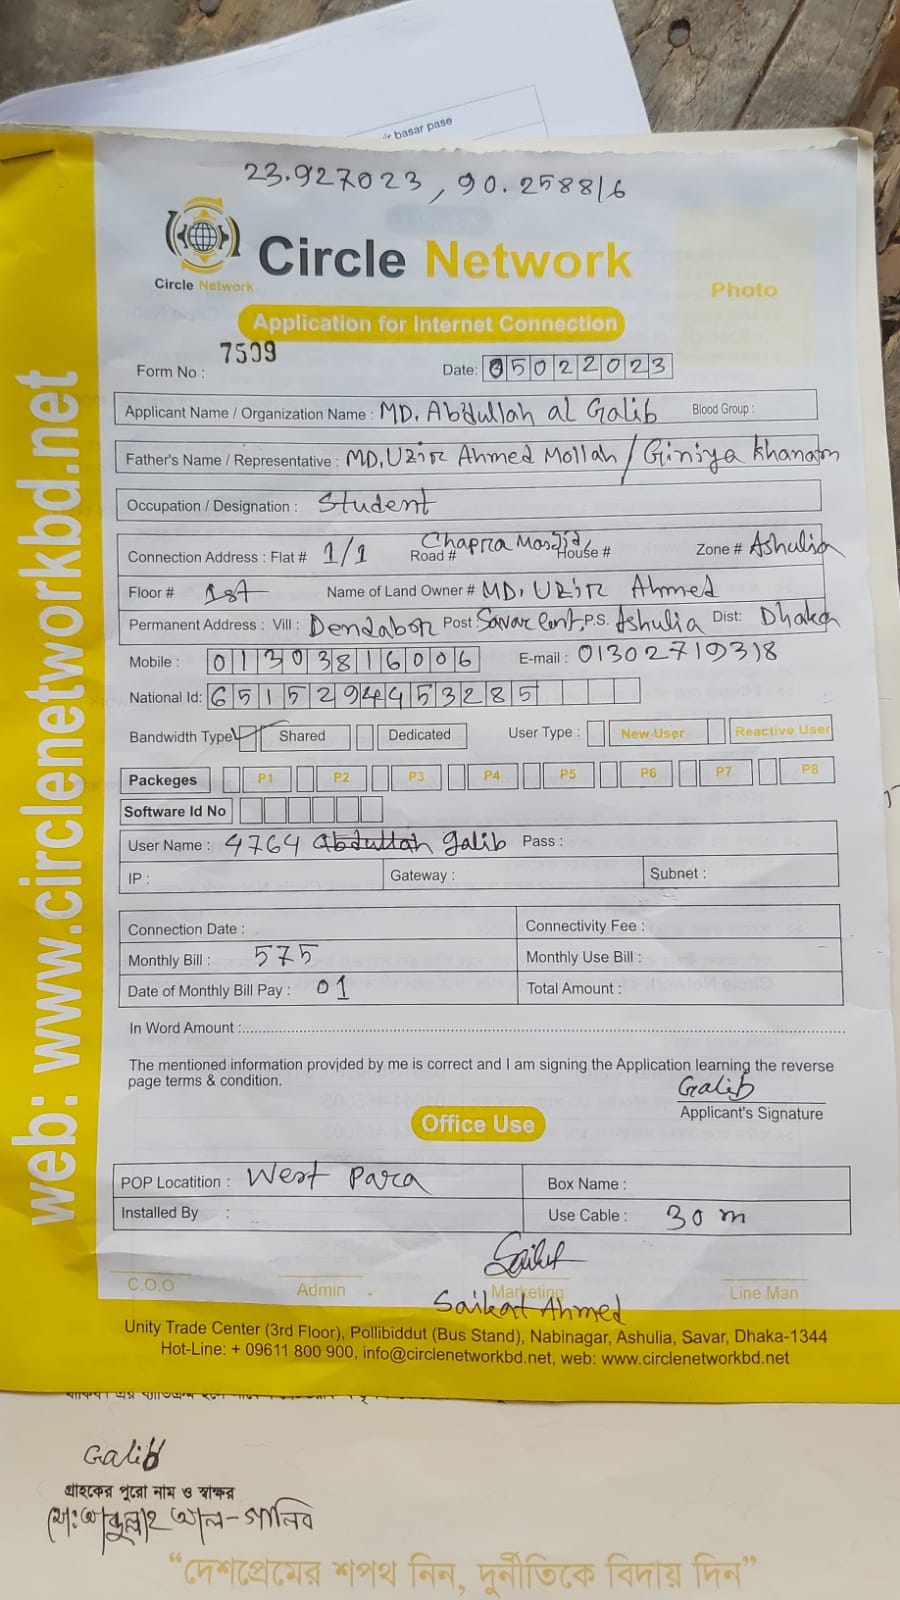 basar pase
23.927023, 90.258816
Circle Network
Circle Network
Photo
Application for Internet Connection
Form No : 7509
Date: 05022023
Applicant Name / Organization Name : MD. Abdullah al Galib Blood Group :
Father's Name / Representative : MD. Uzir Ahmed Mollah / Giniya Khanam
Occupation / Designation : Student
Connection Address : Flat # 1/1 Road # Chapra Masjid, House # Zone # Ashulia
Floor # 1st Name of Land Owner # MD. Uzir Ahmed
Permanent Address : Vill : Dendabor Post Savar Cent, P.S. Ashulia Dist: Dhaka
Mobile : 01303816006 E-mail : 01302719318
National Id: 6515294453285
Bandwidth Type Shared Dedicated User Type : New User Reactive User
Packeges P1 P2 P3 P4 P5 P6 P7 P8
Software Id No
User Name : 4764 Abdullah galib Pass :
IP : Gateway : Subnet :
Connection Date : Connectivity Fee :
Monthly Bill : 575 Monthly Use Bill :
Date of Monthly Bill Pay : 01 Total Amount :
In Word Amount :
The mentioned information provided by me is correct and I am signing the Application learning the reverse
page terms & condition.
Galib
Applicant's Signature
Office Use
POP Locatition : West Para Box Name :
Installed By : Use Cable : 30 m
Saikat
C.O.O Admin . Marketing Line Man
Saikat Ahmed
Unity Trade Center (3rd Floor), Pollibiddut (Bus Stand), Nabinagar, Ashulia, Savar, Dhaka-1344
Hot-Line: + 09611 800 900, info@circlenetworkbd.net, web: www.circlenetworkbd.net
web: www.circlenetworkbd.net
Galib
গ্রাহকের পুরো নাম ও স্বাক্ষর
মো: আব্দুল্লাহ আল-গালিব
“দেশপ্রেমের শপথ নিন, দুর্নীতিকে বিদায় দিন”